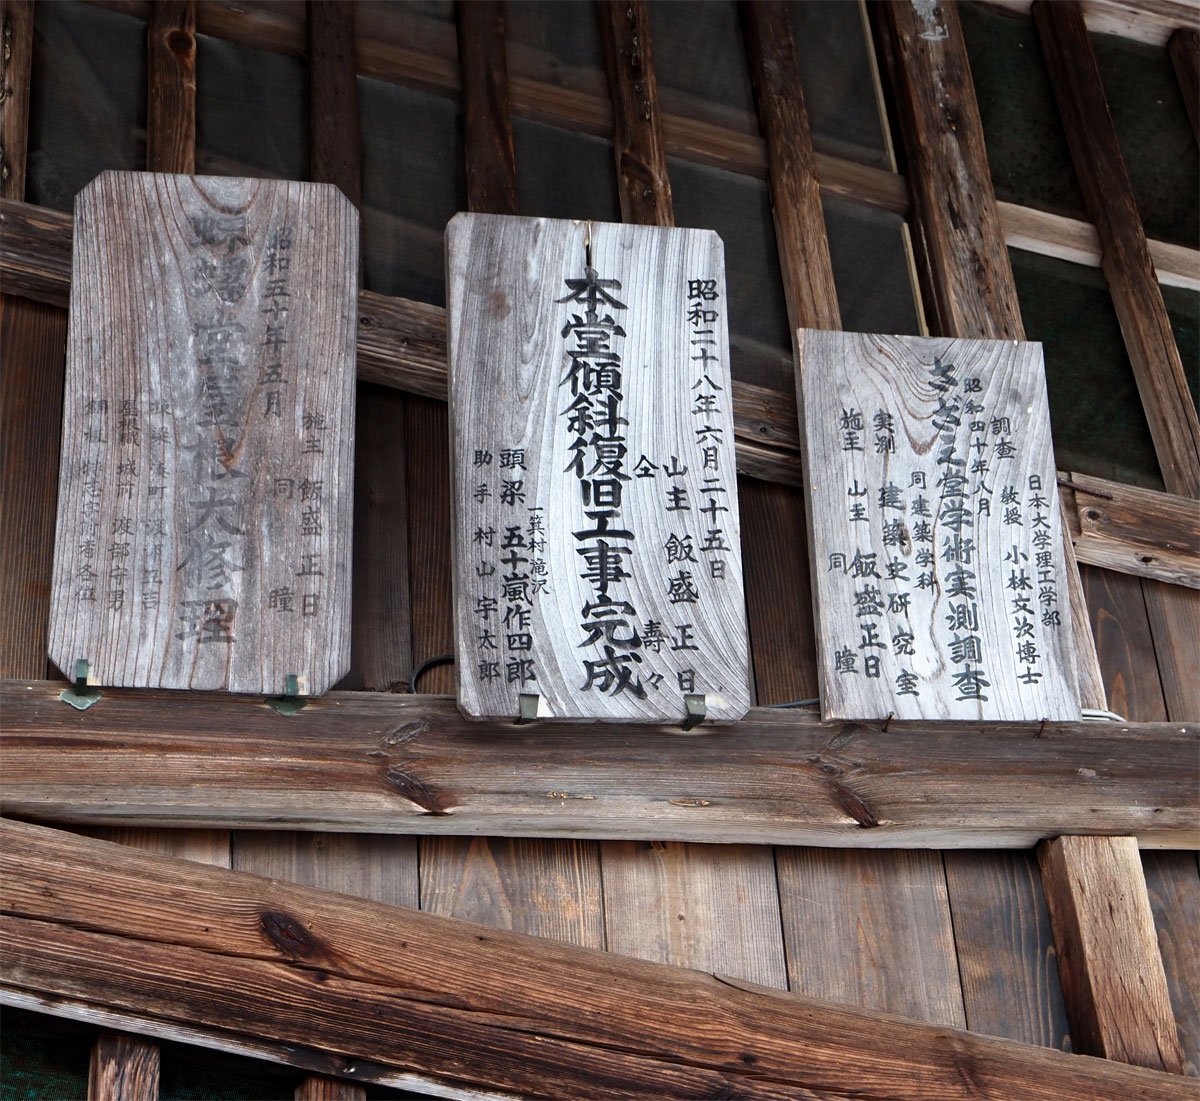 日本大学理工学部
調査 教授 小林文次博士
昭和四十年八月
さざえ堂学術実測調査
同 建築学科
実測 建築史研究室
施主 山主 飯盛正日
同 瞳
昭和二十八年六月二十五日
山主 飯盛正日
仝 壽々
本堂傾斜復旧工事完成
一箕村滝沢
頭梁 五十嵐作四郎
助手 村山宇太郎
施主 飯盛正日
昭和五十年五月
同 瞳
螺堂屋根大修理
屋根職 城前 渡部守男